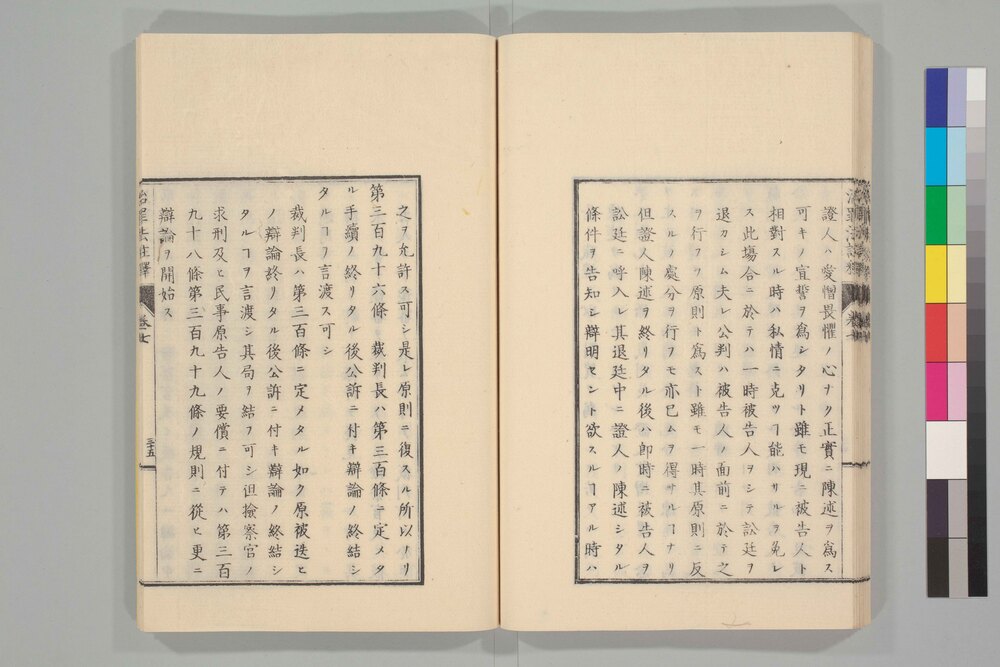 證人ハ愛憎畏懼ノ心ナク正實ニ陳述ヲ爲ス
可キノ宣誓ヲ爲シタリト雖モ現ニ被告人ト
相對スル時ハ私情ニ克ツヿ能ハサルヲ免レ
ス此塲合ニ於テハ一時被告人ヲシテ訟廷ヲ
退カシム夫レ公判ハ被告人ノ面前ニ於テ之
ヲ行フヲ原則ト爲スト雖モ一時其原則ニ反
スルノ處分ヲ行フモ亦已ムヲ得サルヿナリ
但證人陳述ヲ終リタル後ハ即時ニ被告人ヲ
訟廷ニ呼入レ其退廷中ニ證人ノ陳述シタル
條件ヲ告知シ辯明セント欲スルヿアル時ハ
之ヲ允許ス可シ是レ原則ニ復スル所以ナリ
第三百九十六條 裁判長ハ第三百條ニ定メタ
ル手續ノ終リタル後公訴ニ付キ辯論ノ終結シ
タルヿヲ言渡ス可シ
裁判長ハ第三百條ニ定メタル如ク原被迭ヒ
ノ辯論終リタル後公訴ニ付キ辯論ノ終結シ
タルヿヲ言渡シ其局ヲ結フ可シ但撿察官ノ
求刑及ヒ民事原告人ノ要償ニ付テハ第三百
九十八條第三百九十九條ノ規則ニ從ヒ更ニ
辯論ヲ開始ス
治罪法註釋 卷七 三十五